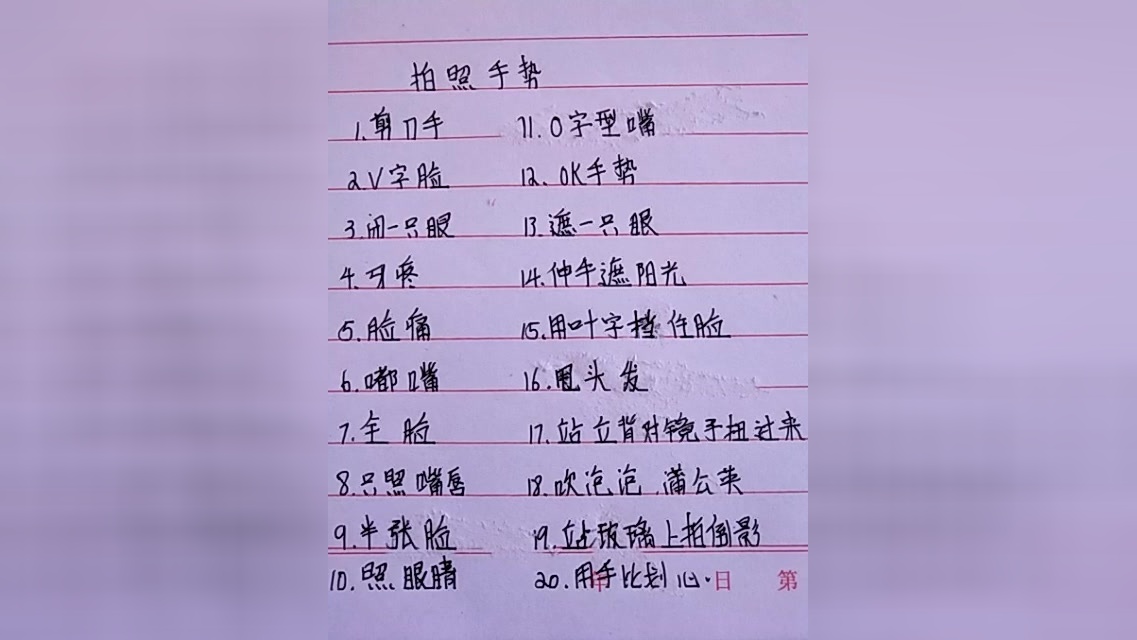 拍照手势
1.剪刀手 11.O字型嘴
2.V字脸 12.OK手势
3.闭一只眼 13.遮一只眼
4.牙疼 14.伸手遮阳光
5.脸痛 15.用叶子挡住脸
6.嘟嘴 16.甩头发
7.全脸 17.站立背对镜子扭过来
8.只照嘴唇 18.吹泡泡.蒲公英
9.半张脸 19.站玻璃上拍倒影
10.照眼睛 20.用手比划心.
年 日 第